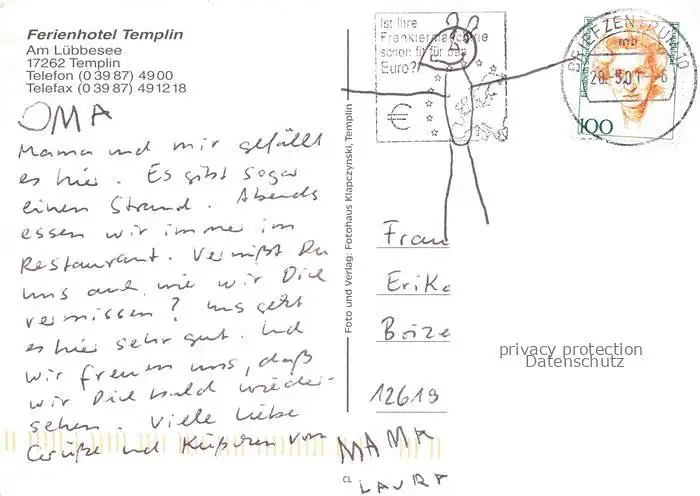 Ferienhotel Templin
Am Lübbesee
17262 Templin
Telefon (0 39 87) 49 00
Telefax (0 39 87) 49 12 18
OMA
Mama und mir gefällt
es hier. Es gibt sogar
einen Strand. Abends
essen wir immer im
Restaurant. Vermißt Du
uns auch, wie wir Dich
vermissen? Uns geht
es hier sehr gut. Und
wir freuen uns, daß
wir Dich bald wieder-
sehen. Viele liebe
Grüße und Küßchen von
MAMA
LAURA
CL
Foto und Verlag: Fotohaus Klapczynski, Templin
Ist Ihre
Frankiermaschine
schon fit für den
Euro?
€
BRIEFZENTRUM 10
mb
28.-5.01 -6
100
Frau
Erika
12619
privacy protection
Datenschutz